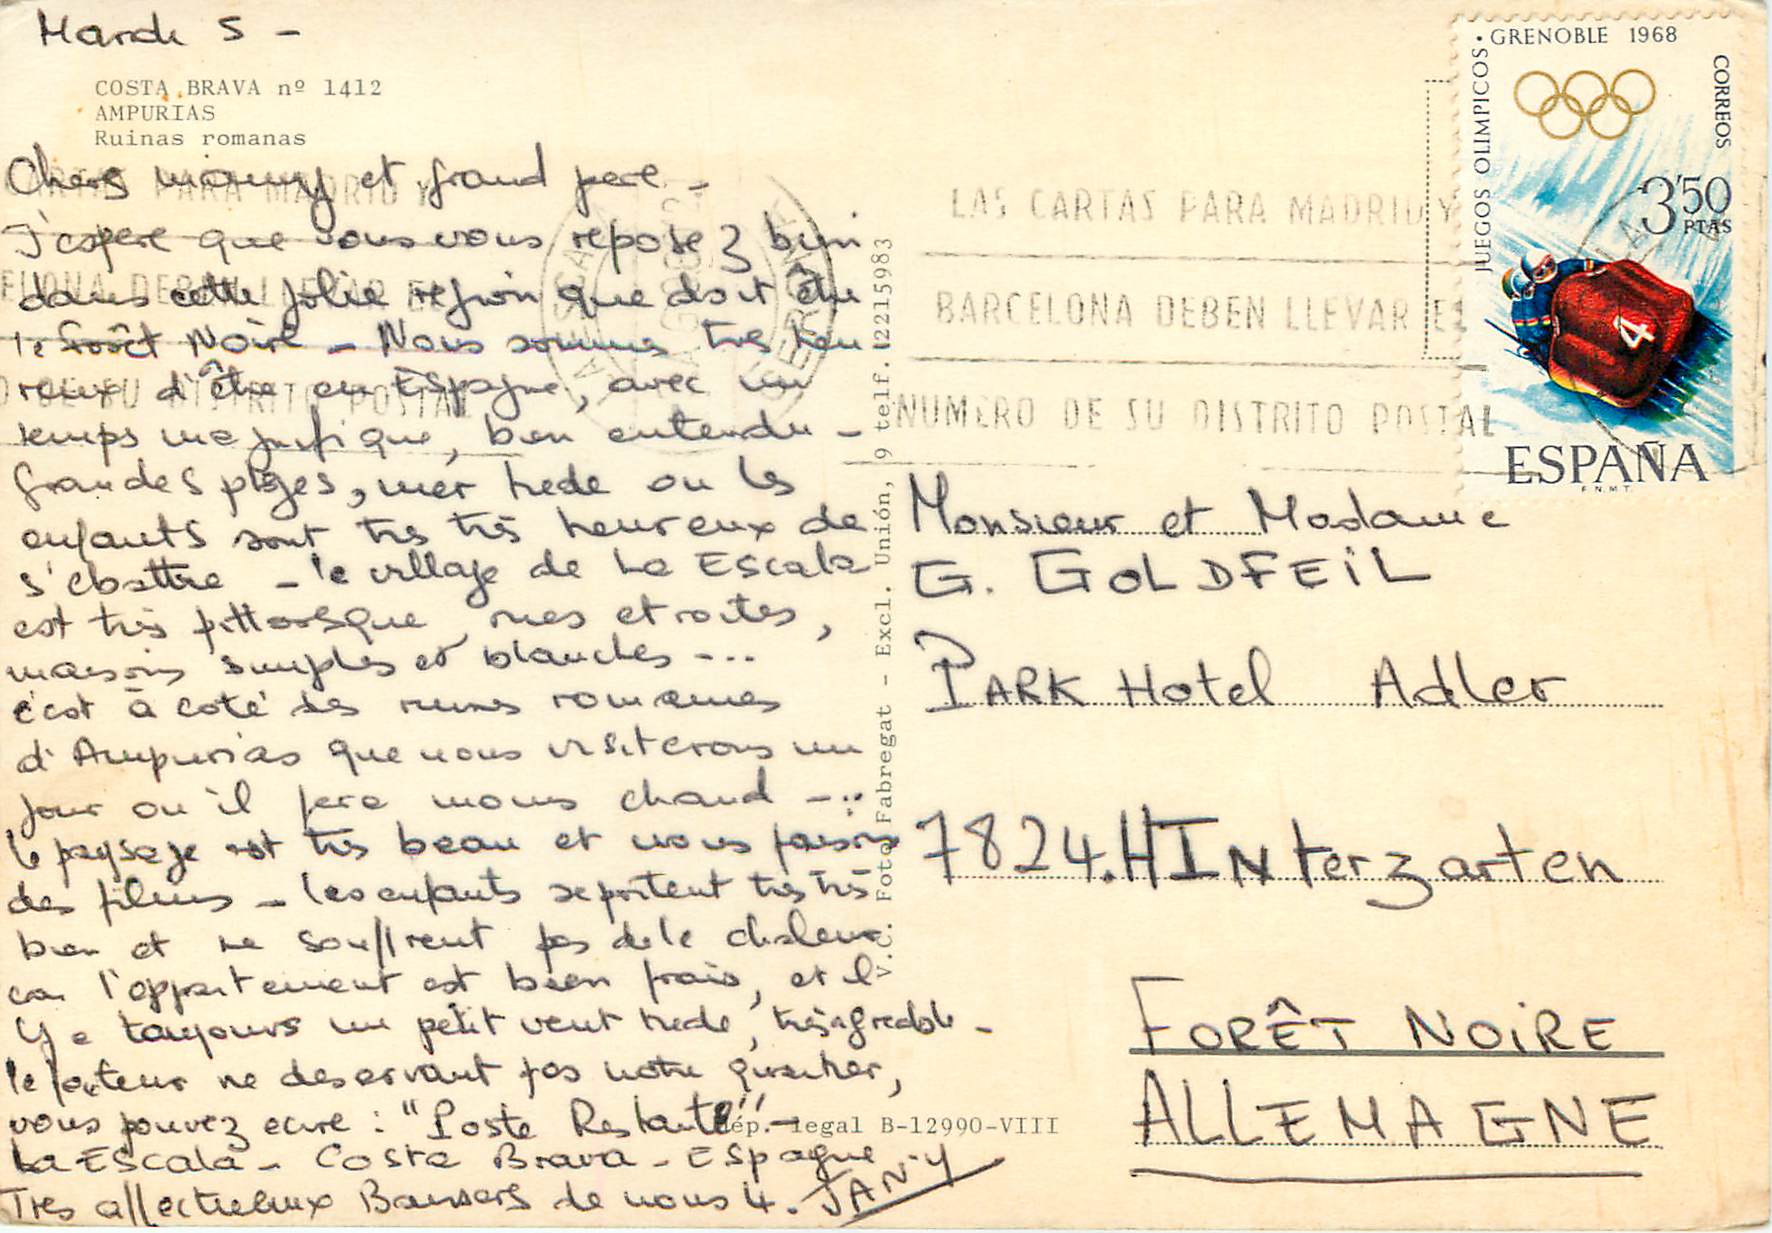 Mardi 5 -
COSTA BRAVA nº 1412
AMPURIAS
Ruinas romanas
Chers mamy et grand père -
J'espère que vous vous reposez bien
dans cette jolie région que doit être
le forêt Noire - Nous sommes très heu
reux d'être en Espagne, avec un
temps magnifique, bien entendu -
Grandes plages, mer tiède où les
enfants sont très très heureux de
s'ébattre - le village de La Escala
est très pittoresque, rues étroites,
maisons simples et blanches - ...
c'est à coté des ruines romaines
d'Ampurias que nous visiterons un
jour où il fera moins chaud - ...
le paysage est très beau et nous faisons
des films - les enfants se portent très très
bien et ne souffrent pas de la chaleur
car l'appartement est bien frais, et il
y a toujours un petit vent tiède, très agréable -
le facteur ne desservant pas notre quartier,
vous pouvez écrire : "Poste Restante" -
La Escala - Costa Brava - Espagne
Très affectueux Baisers de nous 4. JANY
V.C. Foto Fabregat - Excl. Unión, 9 telf. 2215983
Dép. legal B-12990-VIII
LAS CARTAS PARA MADRID Y
BARCELONA DEBEN LLEVAR EL
NUMERO DE SU DISTRITO POSTAL
JUEGOS OLIMPICOS • GRENOBLE 1968
CORREOS
3'50
PTAS
4
ESPAÑA
F.N.M.T.
Monsieur et Madame
G. GOLDFEIL
PARK Hotel Adler
7824. HINterzarten
FORÊT NOIRE
ALLEMAGNE